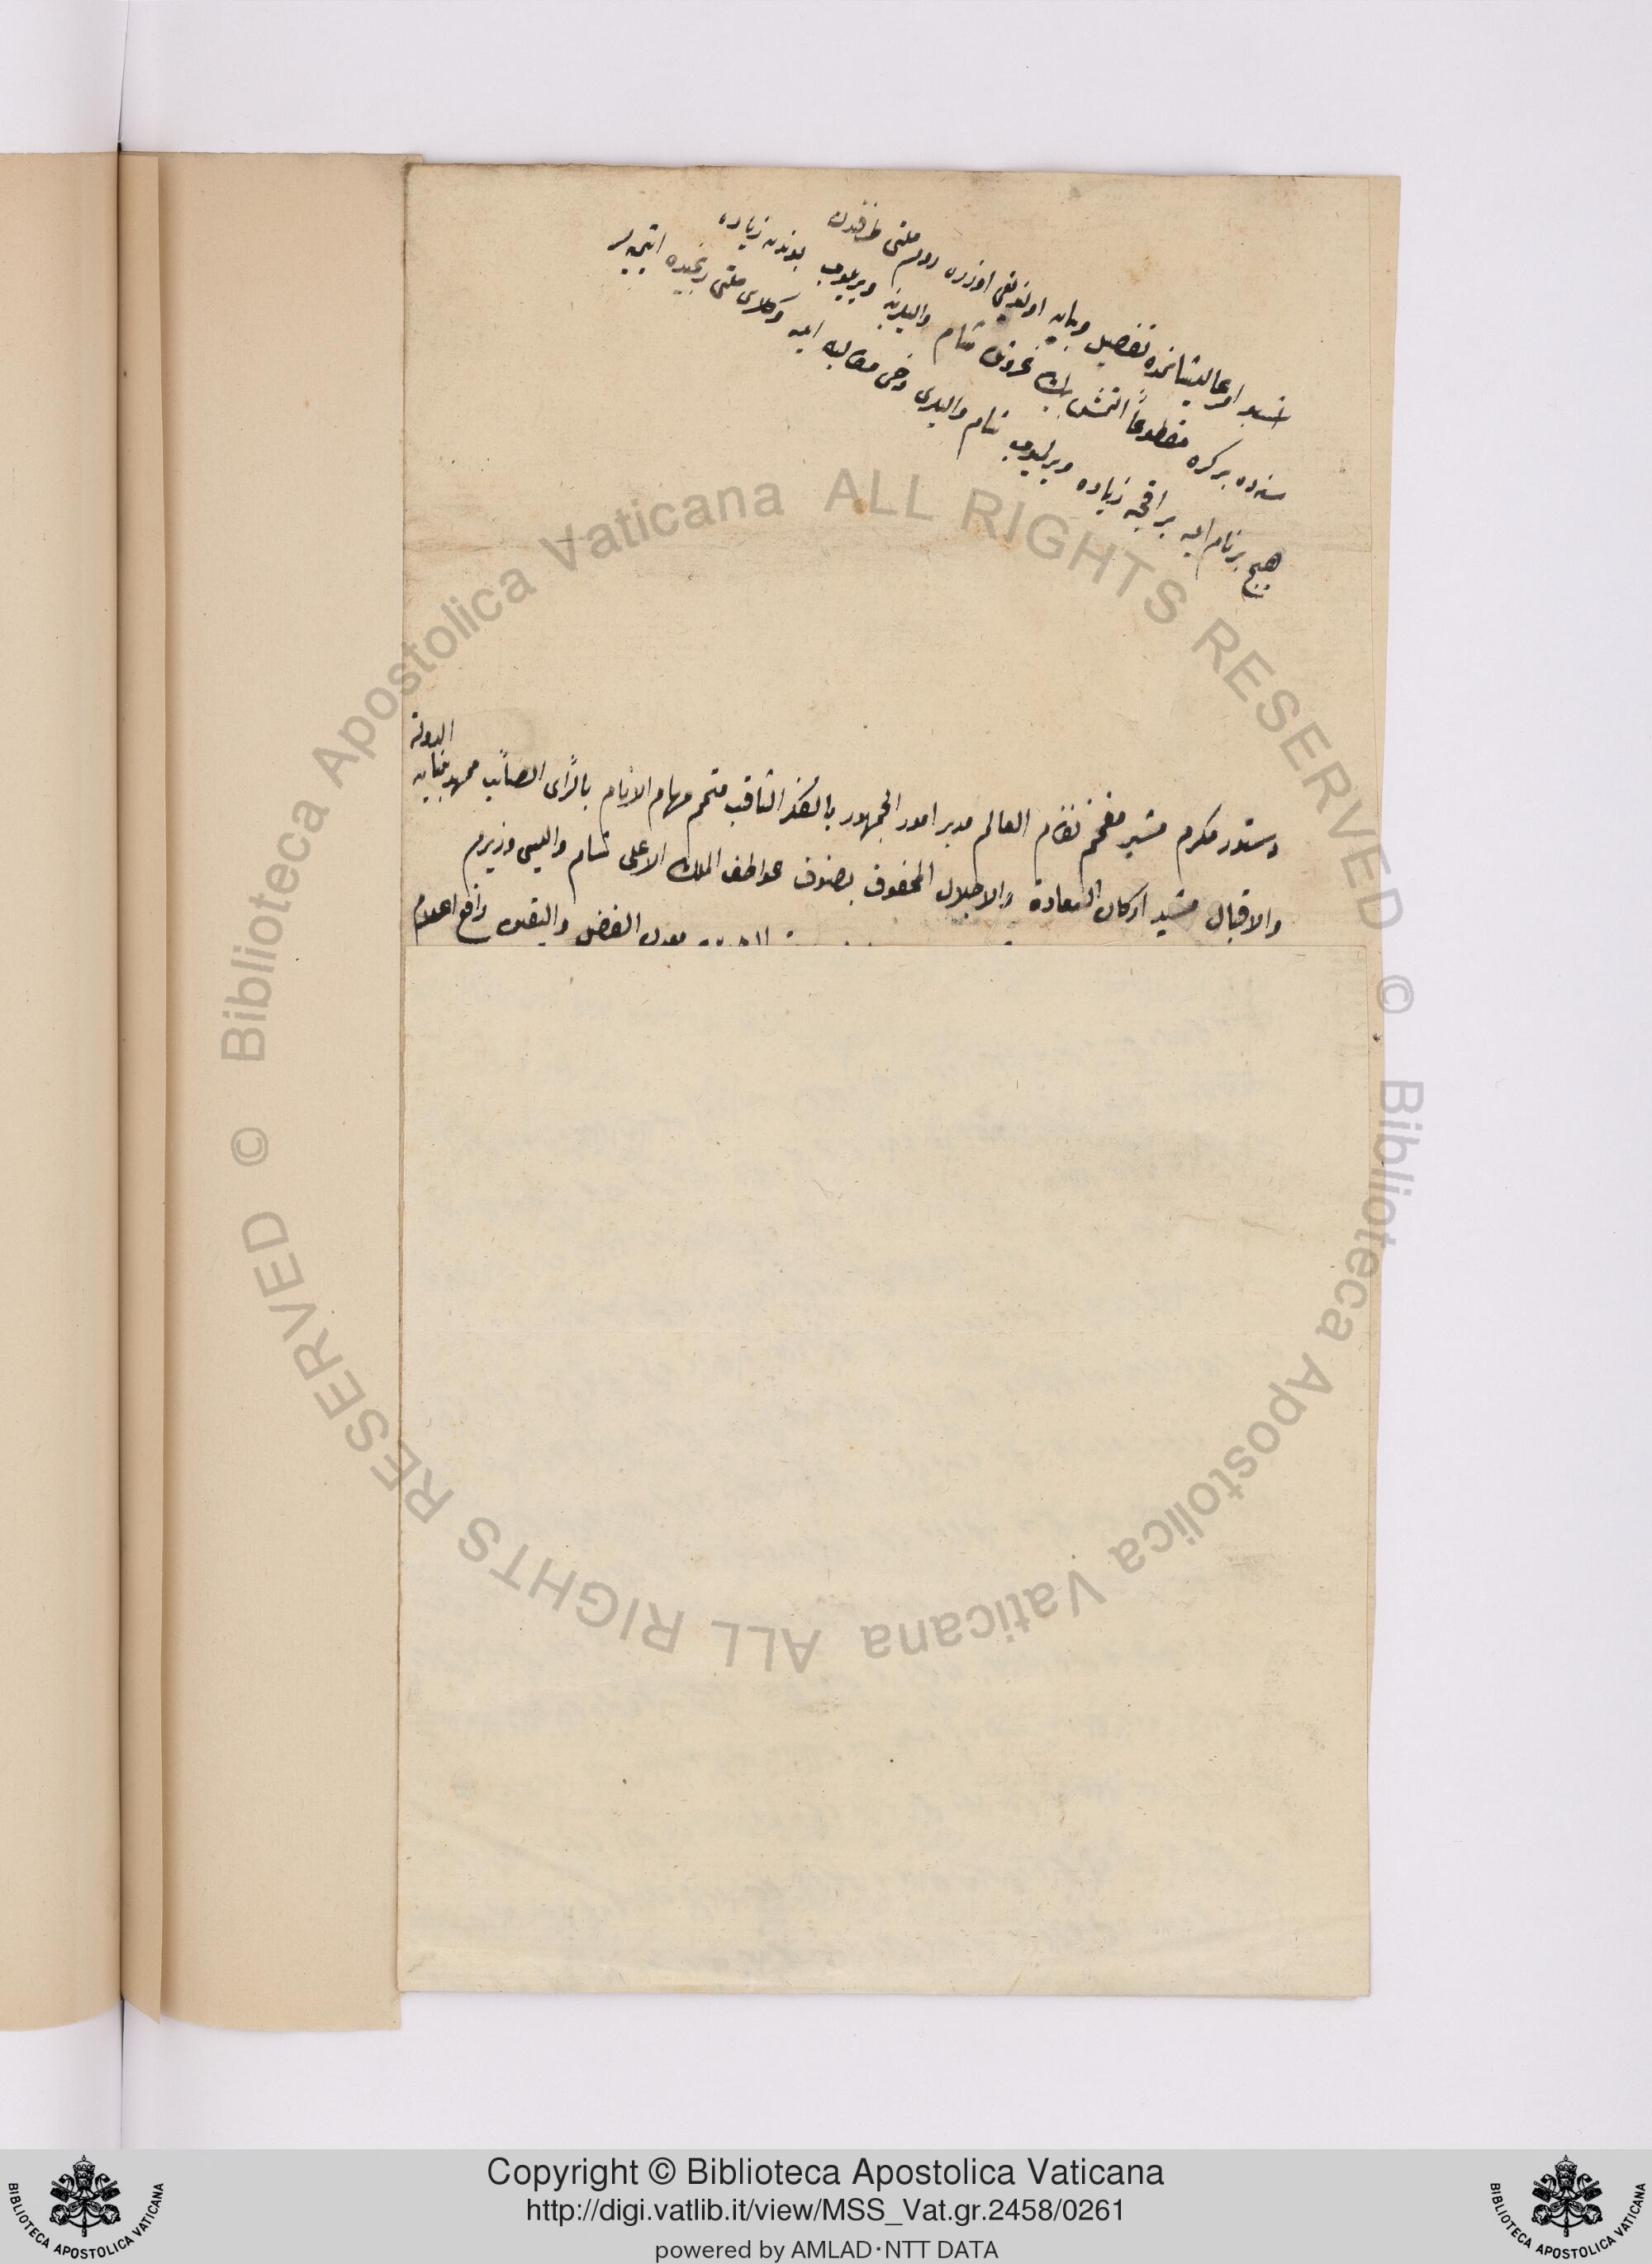 اشبو امر عاليشانمده تفصيل وبيان اولنديغى اوزره روم ملتى طرفندن
سنه ده بر كره مقطوعاً التمش بيك غروش شام واليلرينه ويريلوب بوندن زياده
هيچ بر نام ايله بر اقچه زياده ويرلميوب شام واليلرى دخى مطالبه ايله وكلاى ملتى رنجيده ايتميه لر
الدولة
دستور مكرم مشير مفخم نظام العالم مدبر امور الجمهور بالفكر الثاقب متمم مهام الانام بالرأى الصائب ممهد بنيان
والاقبال مشيد اركان السعادة والاجلال المحفوف بصنوف عواطف الملك الاعلى شام واليسى وزيرم
معدن الفضل واليقين رافع اعلام
Biblioteca Apostolica Vaticana ALL RIGHTS RESERVED ©
Biblioteca Apostolica Vaticana ALL RIGHTS RESERVED ©
Copyright © Biblioteca Apostolica Vaticana
http://digi.vatlib.it/view/MSS_Vat.gr.2458/0261
powered by AMLAD·NTT DATA
BIBLIOTECA APOSTOLICA VATICANA
BIBLIOTECA APOSTOLICA VATICANA